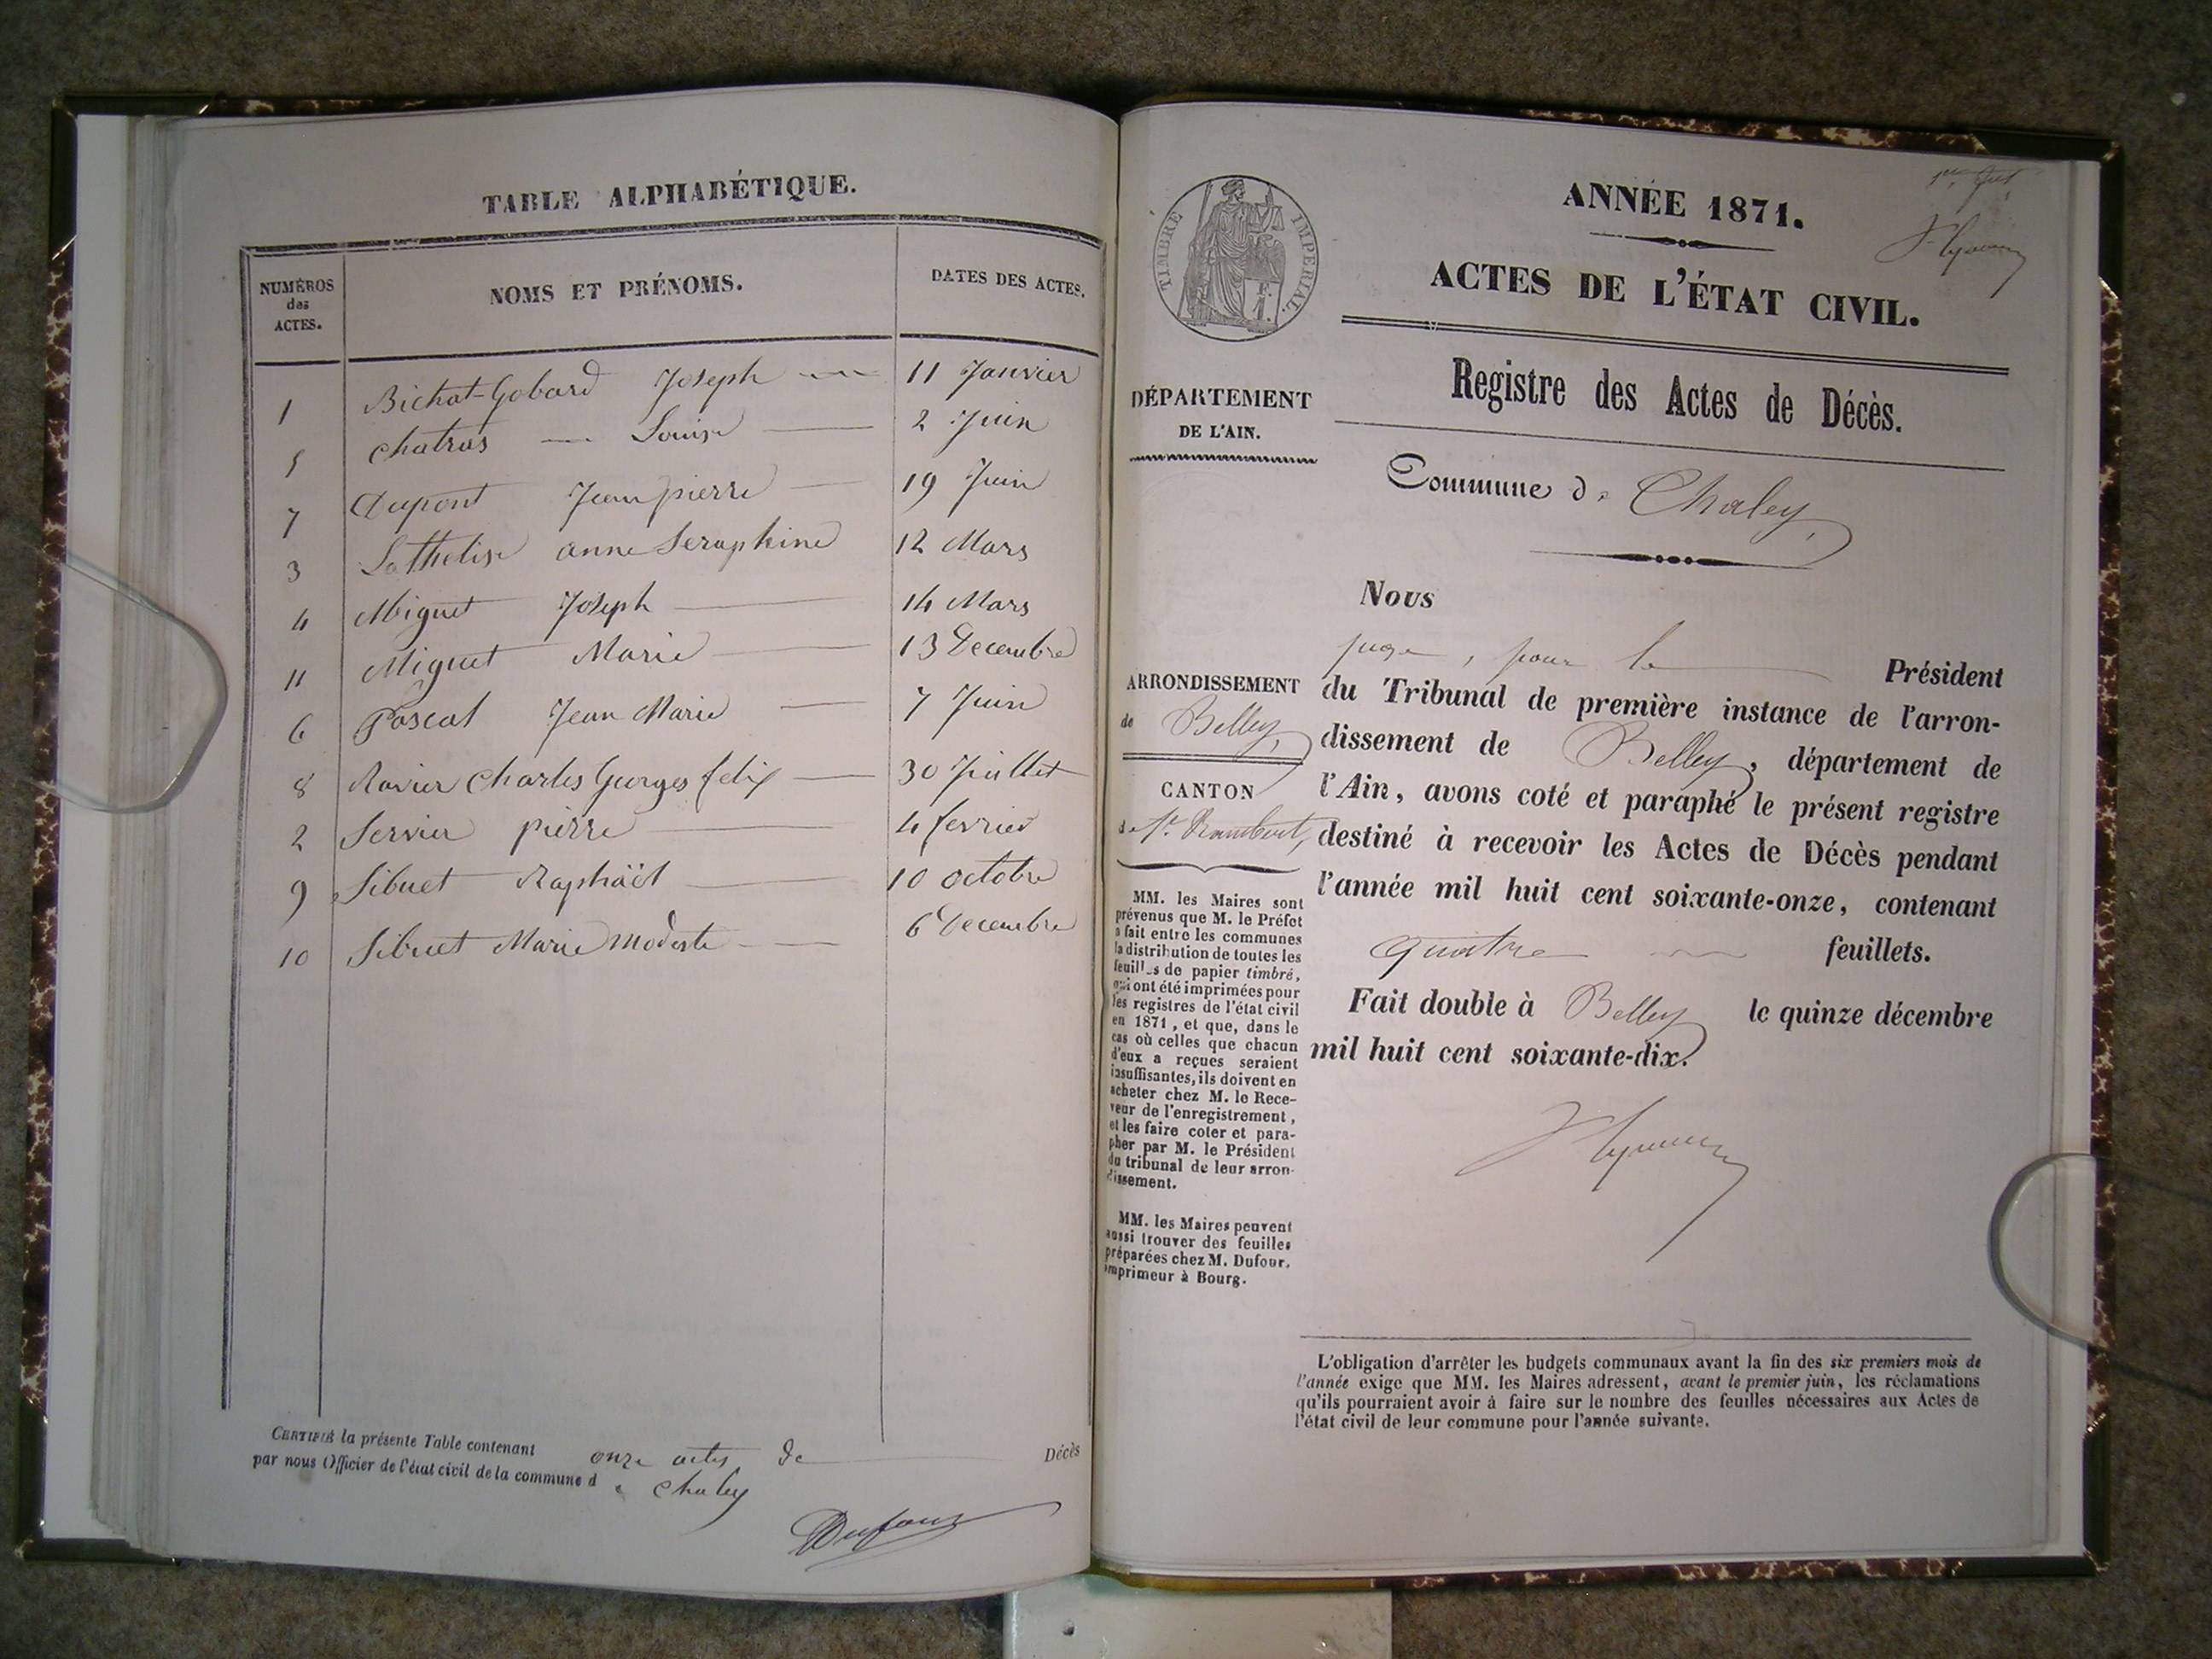 TABLE ALPHABÉTIQUE.
NUMÉROS des ACTES.
NOMS ET PRÉNOMS.
DATES DES ACTES.
1 Bichat-Gobard Joseph 11 Janvier
5 Chatras Louise 2 Juin
7 Dupont Jean pierre 19 Juin
3 Lathelise anne Seraphine 12 Mars
4 Miguet Joseph 14 Mars
11 Miguet Marie 13 Decembre
6 Pascal Jean Marie 7 Juin
8 Ravier Charles Georges felix 30 Juillet
2 Servier pierre 4 fevrier
9 Sibuet Raphaël 10 octobre
10 Sibuet Marie Modeste 6 Decembre
CERTIFIÉ la présente Table contenant onze actes de Décès
par nous Officier de l'état civil de la commune de Chaley
Dufour
TIMBRE IMPÉRIAL.
ANNÉE 1871.
ACTES DE L'ÉTAT CIVIL.
Registre des Actes de Décès.
DÉPARTEMENT
DE L'AIN.
Commune de Chaley,
ARRONDISSEMENT
de Belley,
CANTON
de St. Rambert,
MM. les Maires sont
prévenus que M. le Préfet
a fait entre les communes
la distribution de toutes les
feuilles de papier timbré,
qui ont été imprimées pour
les registres de l'état civil
en 1871, et que, dans le
cas où celles que chacun
d'eux a reçues seraient
insuffisantes, ils doivent en
acheter chez M. le Rece-
veur de l'enregistrement,
et les faire coter et para-
pher par M. le Président
du tribunal de leur arron-
dissement.
MM. les Maires peuvent
aussi trouver des feuilles
préparées chez M. Dufour,
imprimeur à Bourg.
Nous
juge, pour le Président
du Tribunal de première instance de l'arron-
dissement de Belley, département de
l'Ain, avons coté et paraphé le présent registre
destiné à recevoir les Actes de Décès pendant
l'année mil huit cent soixante-onze, contenant
quatre feuillets.
Fait double à Belley le quinze décembre
mil huit cent soixante-dix.
L'obligation d'arrêter les budgets communaux avant la fin des six premiers mois de
l'année exige que MM. les Maires adressent, avant le premier juin, les réclamations
qu'ils pourraient avoir à faire sur le nombre des feuilles nécessaires aux Actes de
l'état civil de leur commune pour l'année suivante.